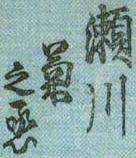 瀬川
菊
之丞